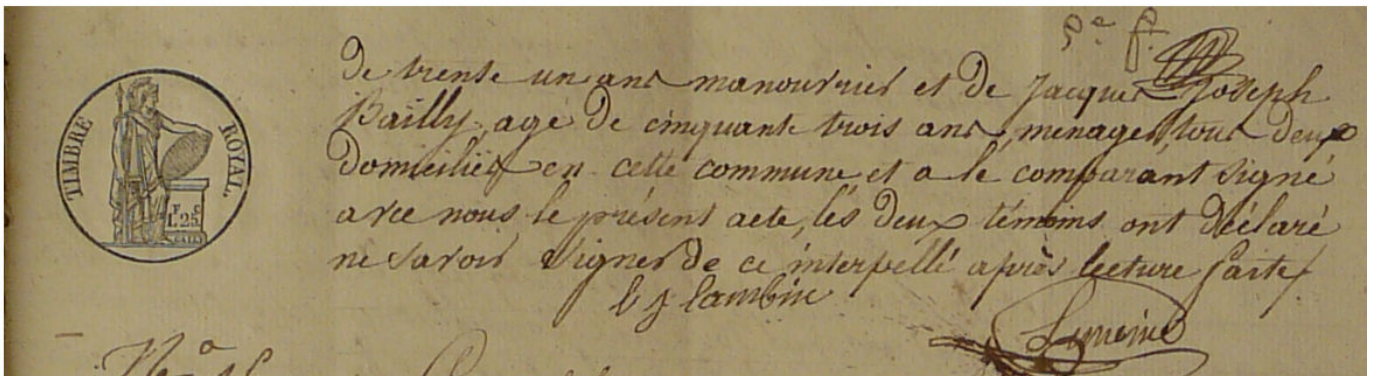 5.e f.
TIMBRE ROYAL.
F. C
1.25
de trente un ans manouvrier et de Jacques Joseph
Bailly, agé de cinquante trois ans, menager, tous deux
domiciliés en cette commune et a le comparant signé
avec nous le présent acte, les deux témoins ont déclaré
ne savoir signer de ce interpellé après lecture faite
l j lambin
Lemoine
N.o 15